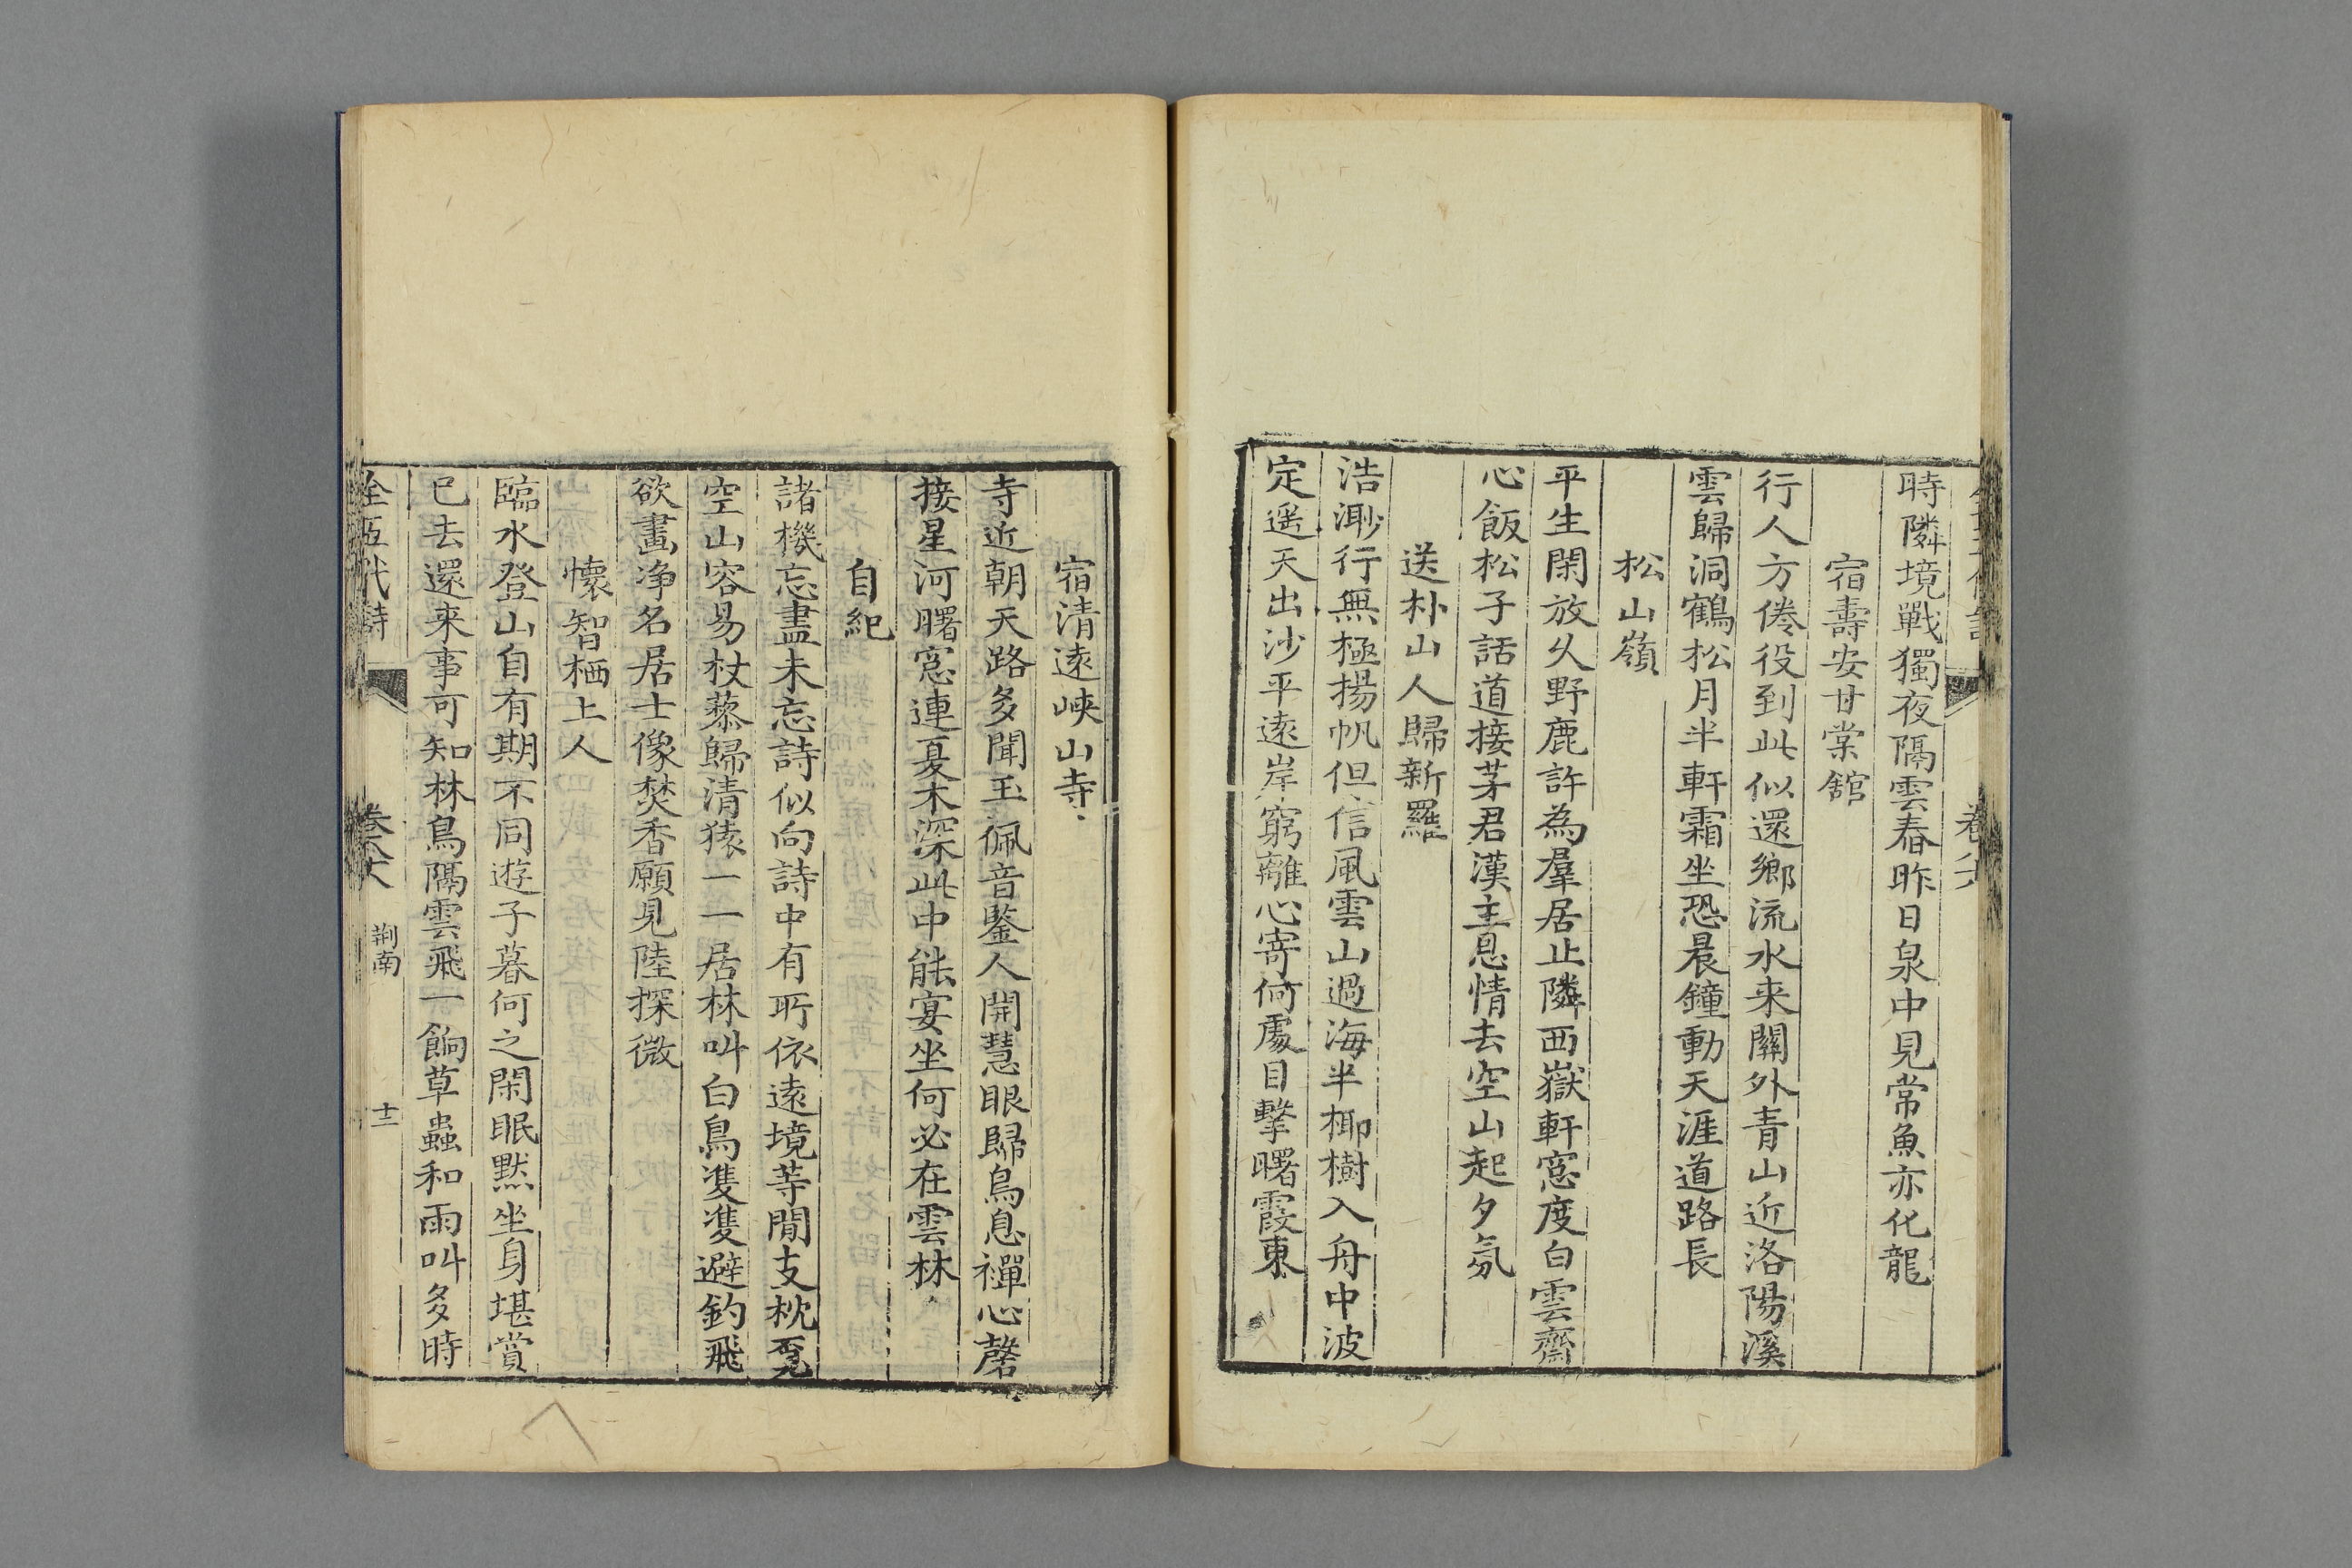 時隣境戰獨夜隔雲春昨日泉中見常魚亦化龍
宿壽安甘棠舘
行人方倦役到此似還鄉流水来關外青山近洛陽溪
雲歸洞鶴松月半軒霜坐恐晨鐘動天涯道路長
松山嶺
平生閑放久野鹿許為羣居止隣西嶽軒窓度白雲齋
心飯松子話道接茅君漢主恩情去空山起夕氛
送朴山人歸新羅
浩渺行無極揚帆但信風雲山過海半鄊樹入舟中波
定遥天出沙平遠岸窮離心寄何處目擊曙霞東
宿清遠峽山寺
寺近朝天路多聞玉佩音鑒人開慧眼歸鳥息禪心磬
接星河曙窓連夏木深此中能宴坐何必在雲林
自紀
諸機忘盡未忘詩似向詩中有所依遠境等閒支枕覓
空山容易杖藜歸清猿一一居林叫白鳥隻隻避釣飛
欲畫净名居士像焚香願見陸探微
懷智栖上人
臨水登山自有期不同遊子暮何之閑眠黙坐身堪賞
已去還来事可知林鳥隔雲飛一餉草蟲和雨叫多時
全五代詩 卷八六 荆南 十三